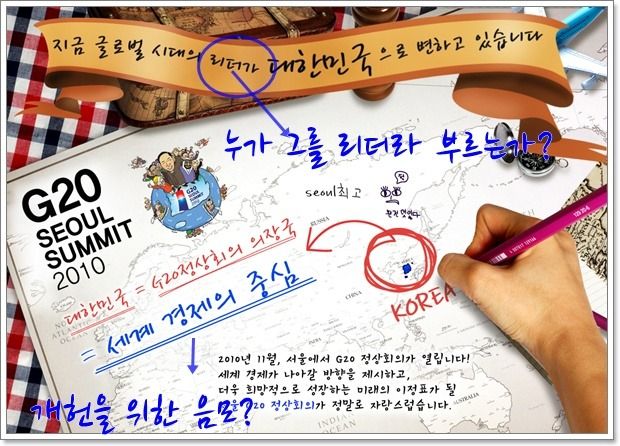 지금 글로벌 시대의 리더가 대한민국으로 변하고 있습니다
누가 그를 리더라 부르는가?
G20
SEOUL
SUMMIT
2010
G20
SEOUL SUMMIT
seoul최고
RUSSIA
CHINA
KOREA
대한민국 = G20정상회의 의장국
= 세계 경제의 중심
2010년 11월, 서울에서 G20 정상회의가 열립니다!
세계 경제가 나아갈 방향을 제시하고,
더욱 희망적으로 성장하는 미래의 이정표가 될
서울 G20 정상회의가 정말로 자랑스럽습니다.
개헌을 위한 음모?